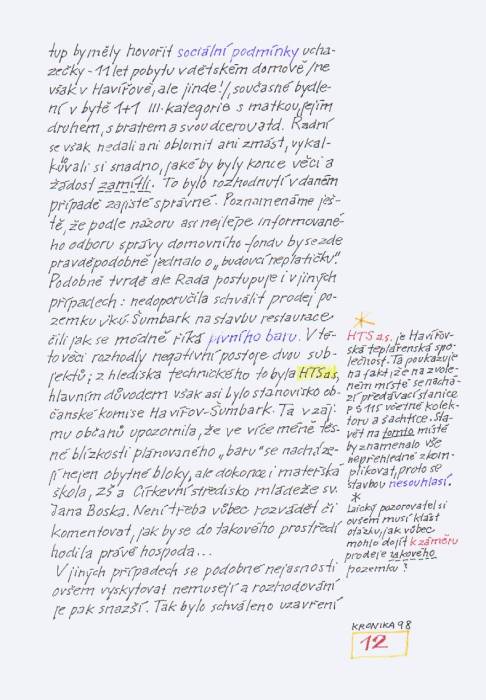 tup by měly hovořit sociální podmínky ucha-
zečky - 11 let pobytu v dětském domově /ne
však v Havířově, ale jinde!/, současné bydle-
ní v bytě 1+1 III. kategorie s matkou, jejím
druhem, s bratrem a svou dcerou atd. Radní
se však nedali ani oblomit ani zmást, vykal-
kulovali si snadno, jaké by byly konce věci a
žádost zamítli. To bylo rozhodnutí v daném
případě zajisté správné. Poznamenáme ješ-
tě, že podle názoru asi nejlépe informované-
ho odboru správy domovního fondu by se zde
pravděpodobně jednalo o „budoucí neplatičku“.
Podobně tvrdě ale Rada postupuje i v jiných
případech: nedoporučila schválit prodej po-
zemku v k.ú. Šumbark na stavbu restaurace
čili jak se módně říká pivního baru. V té-
to věci rozhodly negativní postoje dvou sub-
jektů; z hlediska technického to byla HTS a.s,
hlavním důvodem však asi bylo stanovisko ob-
čanské komise Havířov-Šumbark. Ta v záj-
mu občanů upozornila, že ve více méně těs-
né blízkosti plánovaného „baru“ se nacháze-
jí nejen obytné bloky, ale dokonce i mateřská
škola, ZŠ a Církevní středisko mládeže sv.
Jana Boska. Není třeba vůbec rozvádět či
komentovat, jak by se do takového prostředí
hodila právě hospoda...
V jiných případech se podobné nejasnosti
ovšem vyskytovat nemusejí a rozhodování
je pak snazší. Tak bylo schváleno uzavření
*
HTS a.s. je Havířov-
ská teplárenská spo-
lečnost. Ta poukazuje
na fakt, že na zvole-
ném místě se nachá-
zí předávací stanice
PS 115 včetně kolek-
toru a šachtice. Sta-
vět na tomto místě
by znamenalo vše
nepřehledně zkom-
plikovat, proto se
stavbou nesouhlasí.
*
Laický pozorovatel si
ovšem musí klást
otázku, jak vůbec
mohlo dojít k záměru
prodeje takového
pozemku?
KRONIKA 98
12